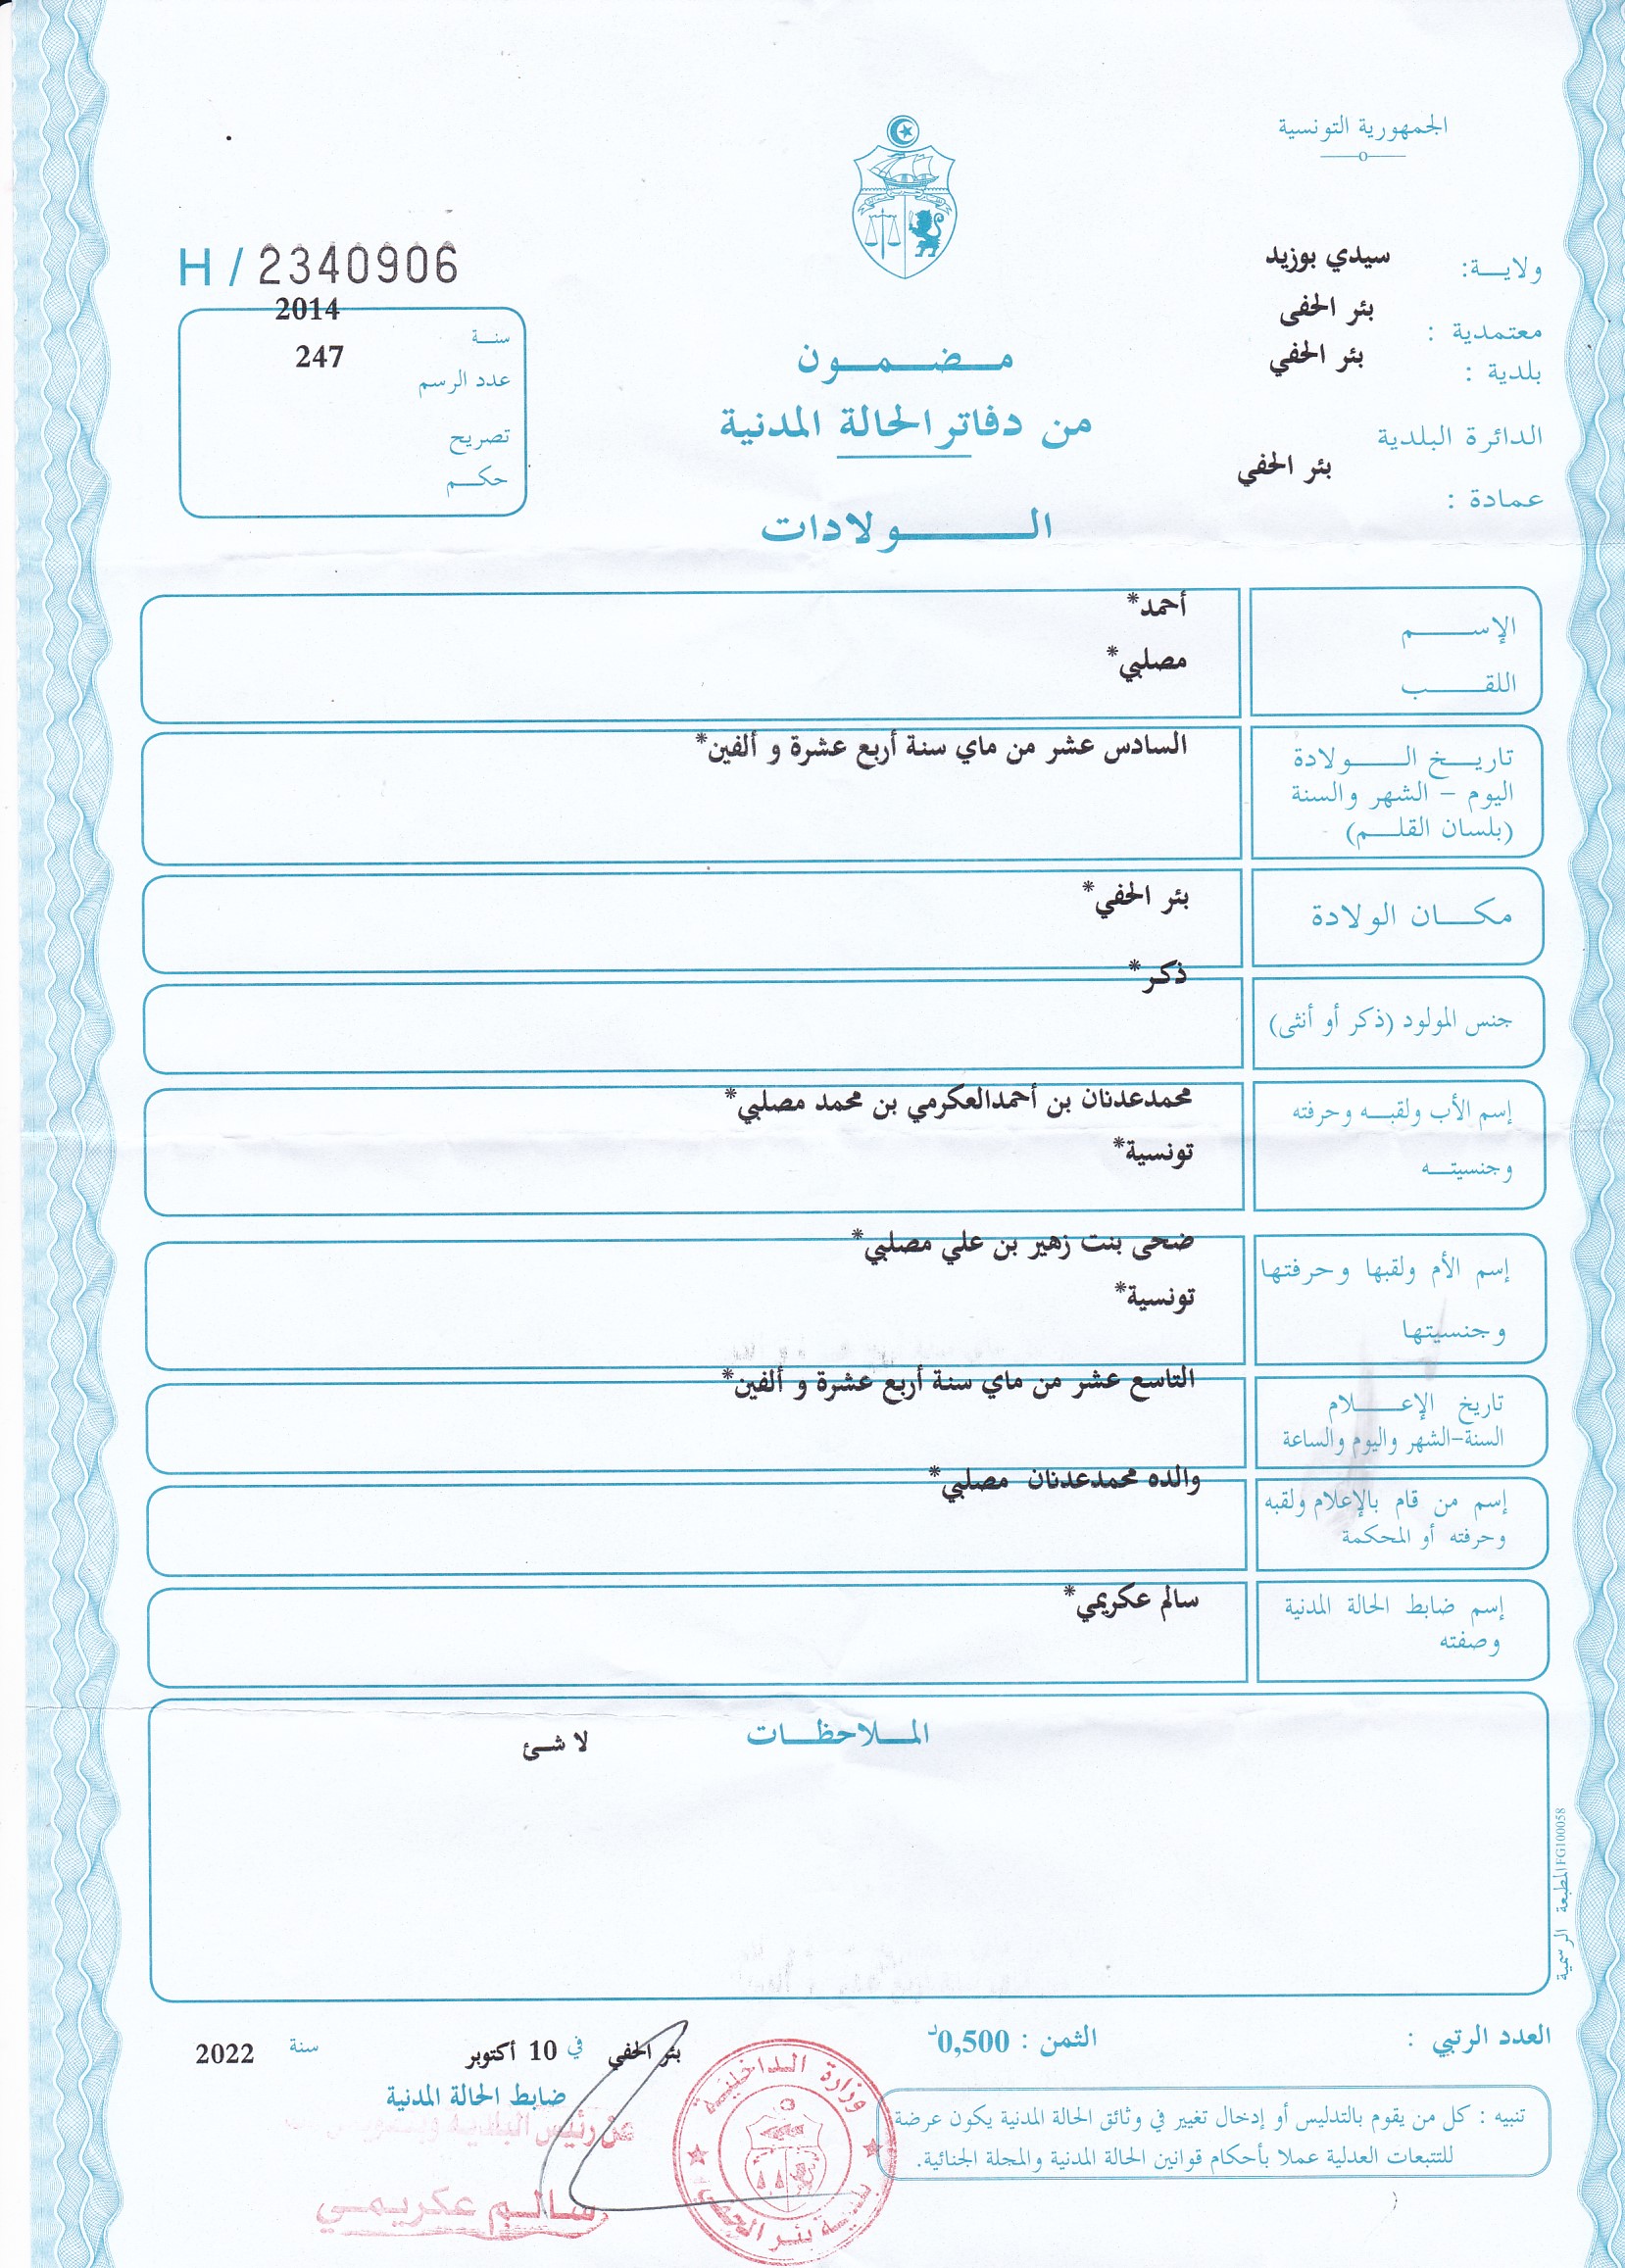 الجمهورية التونسية
ولايـــة: سيدي بوزيد
معتمدية : بئر الحفى
بلدية : بئر الحفي
الدائرة البلدية
عمادة : بئر الحفي
H / 2340906
سنـــة 2014
عدد الرسم 247
تصريح
حكـــم
مـــضـــمـــون
من دفاتر الحالة المدنية
الـــــولادات
الإســـــم أحمد*
اللقـــــب مصلبي*
تاريـــخ الـــــولادة السادس عشر من ماي سنة أربع عشرة و ألفين*
اليوم - الشهر والسنة
(بلسان القلـــم)
مكـــان الولادة بئر الحفي*
جنس المولود (ذكر أو أنثى) ذكر*
إسم الأب ولقبـــه وحرفته محمدعدنان بن أحمدالعكرمي بن محمد مصلبي*
وجنسيتـــه تونسية*
إسم الأم ولقبها وحرفتها ضحى بنت زهير بن علي مصلبي*
وجنسيتها تونسية*
تاريخ الإعـــــلام التاسع عشر من ماي سنة أربع عشرة و ألفين*
السنة-الشهر واليوم والساعة
إسم من قام بالإعلام ولقبه والده محمدعدنان مصلبي*
وحرفته أو المحكمة
إسم ضابط الحالة المدنية سالم عكريمي*
وصفته
المـــلاحظـــات
لا شـئ
المطبعة الرسمية FG100058
العدد الرتبي :
الثمن : 0,500د
بئر الحفي في 10 أكتوبر سنة 2022
ضابط الحالة المدنية
عن رئيس البلدية
سالم عكريمي
وزارة الداخلية
بلدية بئر الحفي
تنبيه : كل من يقوم بالتدليس أو إدخال تغيير في وثائق الحالة المدنية يكون عرضة
للتتبعات العدلية عملا بأحكام قوانين الحالة المدنية والمجلة الجنائية.